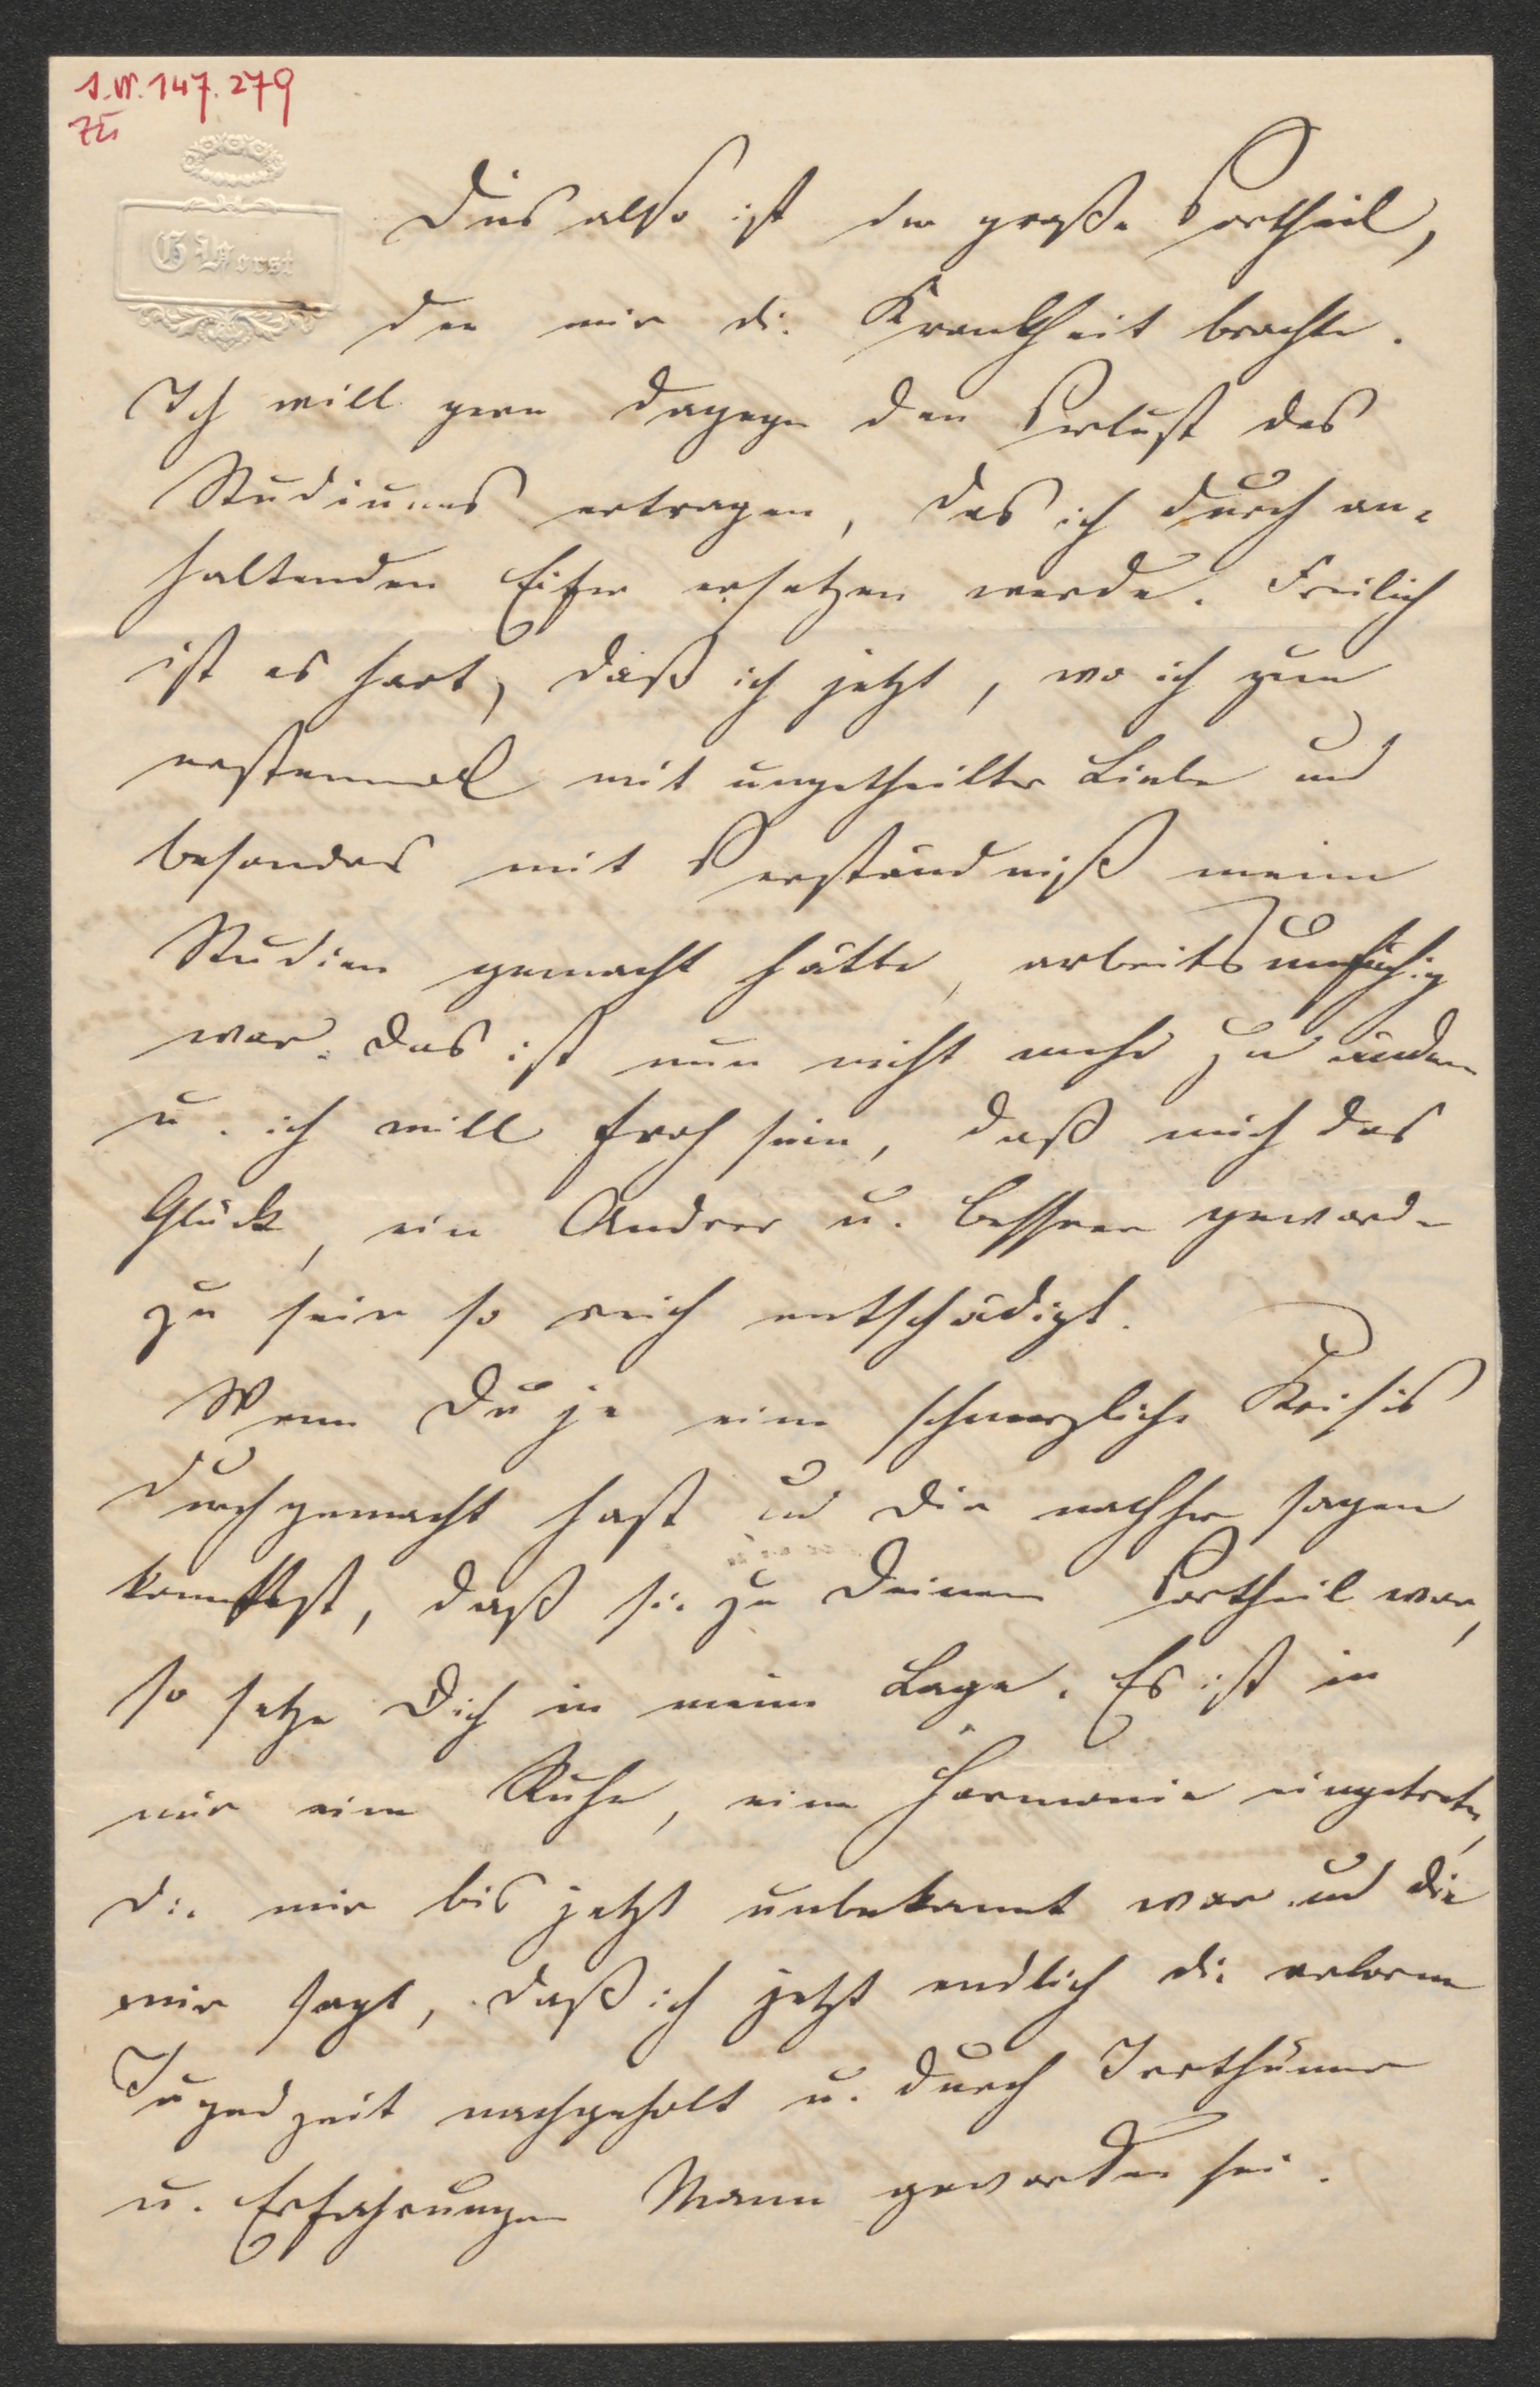 J.N. 147.279
ZE
G Verst
Dies also ist der große Vortheil,
den mir die Krankheit brachte.
Ich will gern dagegen den Verlust des
Studiums ertragen, das ich durch an-
haltenden Eifer ersetzen werde. Freilich
ist es hart, daß ich jetzt, wo ich zum
erstenmal mit ungetheilter Liebe und
besonders mit Verständniß meine
Studien gemacht hätte, arbeitsunfähig
war. Das ist nun nicht mehr zu ändern
u. ich will froh sein, daß mich das
Glück, ein Andrer u. Besserer geworden
zu sein so reich entschädigt.
Wenn Du je eine schmerzliche Krisis
durchgemacht hast und Dir nachher sagen
konntest, daß sie zu Deinem Vortheil war,
so setze Dich in meine Lage. Es ist in
mir eine Ruhe, eine Harmonie eingetreten,
die mir bis jetzt unbekannt war und die
mir sagt, daß ich jetzt endlich die verlorene
Jugendzeit nachgeholt u. durch Irrthümer
u. Erfahrungen Mann geworden sei.